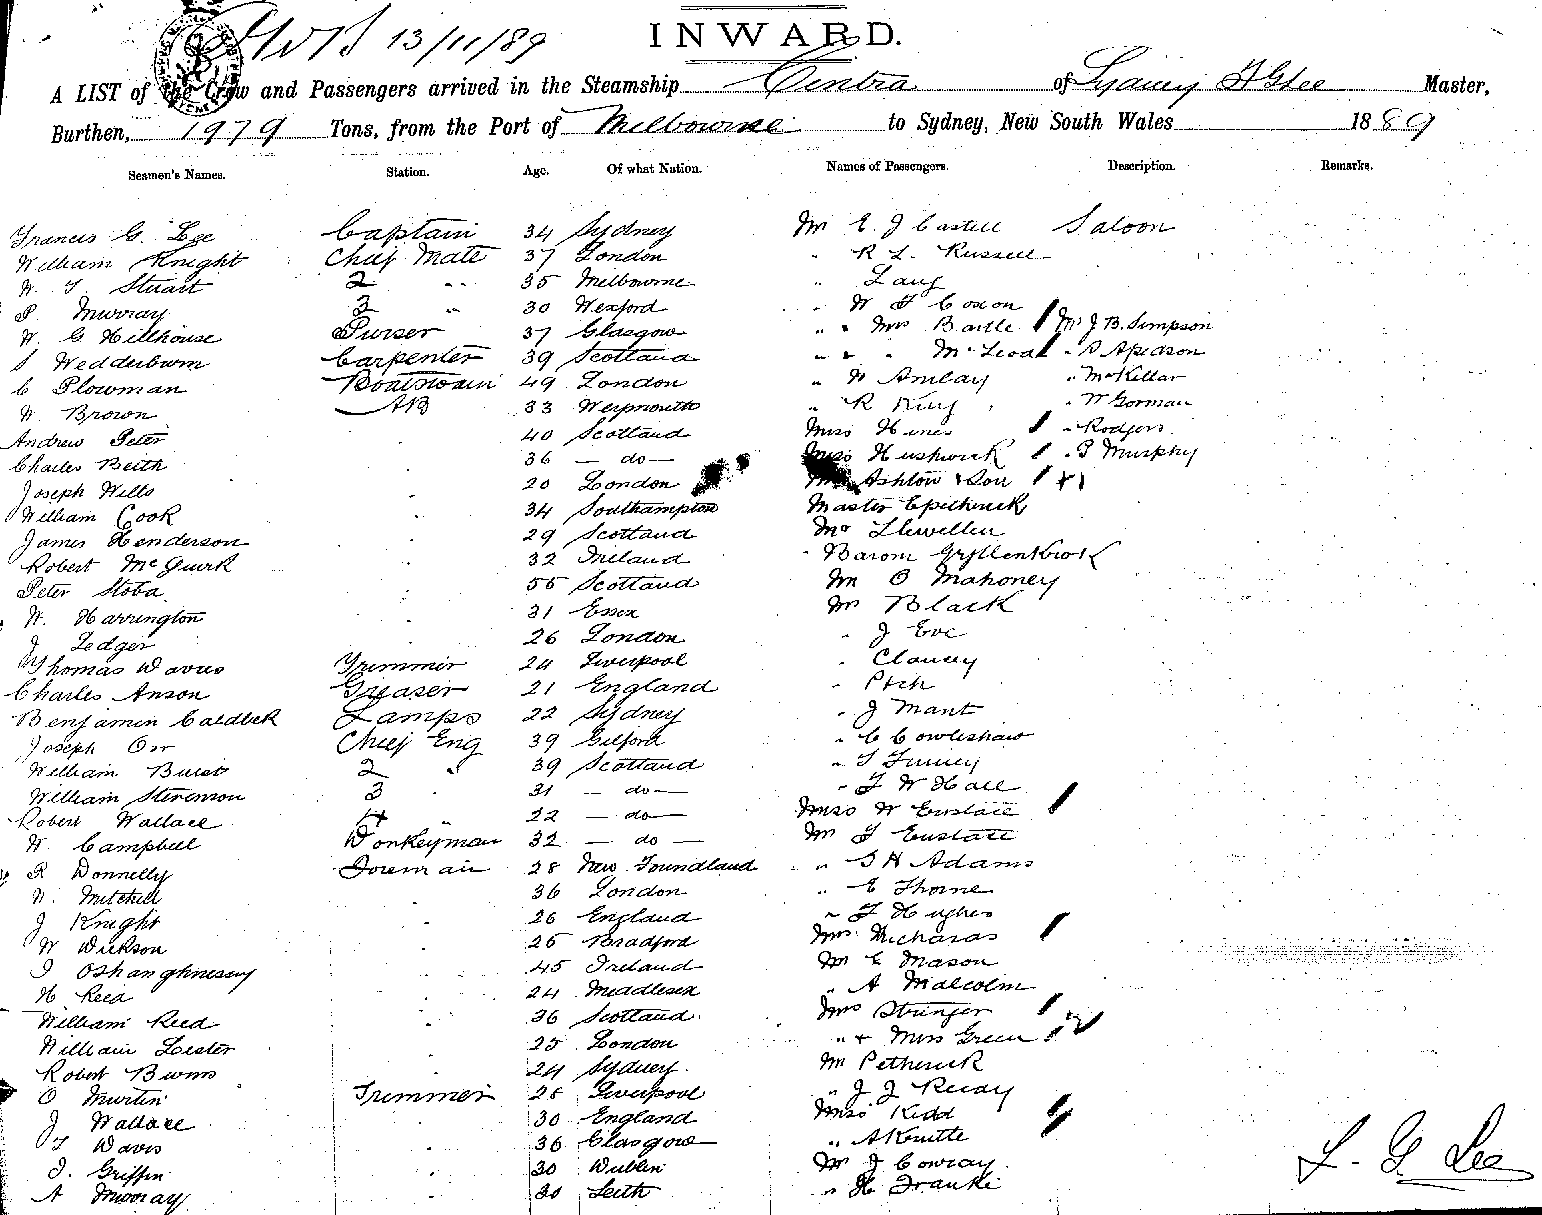 13/11/89
INWARD.
A LIST of the Crew and Passengers arrived in the Steamship Centra of Sydney F G Lee Master,
Burthen, 1979 Tons, from the Port of Melbourne to Sydney, New South Wales 1889
Seamen's Names. Station. Age. Of what Nation. Names of Passengers. Description. Remarks.
Francis G. Lee Captain 34 Sydney Mr E. J Castell Saloon
William Knight Chief Mate 37 London " R L. Russell
W. J. Stuart 2 " 35 Melbourne " Lang
P. Murray 3 " 30 Wexford " W F Coxon
W. G Hillhouse Purser 37 Glasgow " " Mrs Bartle Mr J B. Simpson
J Wedderburn Carpenter 39 Scotland " " " McLeod " S Apedson
C Plowman Boatswain 49 London " W Amlay " McKillar
W. Brown AB 33 Weymouth " R King " W Gorman
Andrew Peter 40 Scotland Miss Hines " Rodgers
Charles Beith 36 — do — Miss Hushwick " P Murphy
Joseph Wills 20 London Ashton & Son
William Cook 34 Southampton Master Epetherick
James Henderson 29 Scotland Mr Llewellin
Robert McQuirk 32 Ireland " Baron Gyllenkrok
Peter Stoba 55 Scotland Mr O Mahoney
W. Harrington 31 Essex Mr Black
J Ledger 26 London " J Eve
Thomas Davies Trimmer 24 Liverpool " Clancey
Charles Anson Greaser 21 England "
Benjamin Caldbek Lamps 22 Sydney " J Mant
Joseph Orr Chief Eng 39 Gilford " C Cowlishaw
William Burst 2 " 39 Scotland " T Finney
William Stevenson 3 31 — do — " F W Hall
Robert Wallace 4 " 22 — do — Miss W Eustace
W. Campbell Donkeyman 32 — do — Mr F Eustace
P Donnelly Foreman 28 New Foundland " S H Adams
W. Mitchell 36 London " E Thorne
J Knight 26 England " F Hughes
W Dickson 25 Bradford Mrs Richards
J Oshanghnessy 45 Ireland Mr E Mason
H Reed 24 Middlesex " A Malcolm
William Reed 36 Scotland Mrs Stringer
William Lester 25 London " + Miss Green
Robert Burns 24 Sydney Mr Petherick
O Martin Trimmer 28 Liverpool " J. J Reeay
J Wallace 30 England Miss Kidd
T Davis 36 Glasgow "
J. Griffin 30 Dublin Mr J Conray
A Murray 30 Leith " H Franki
F. G Lee